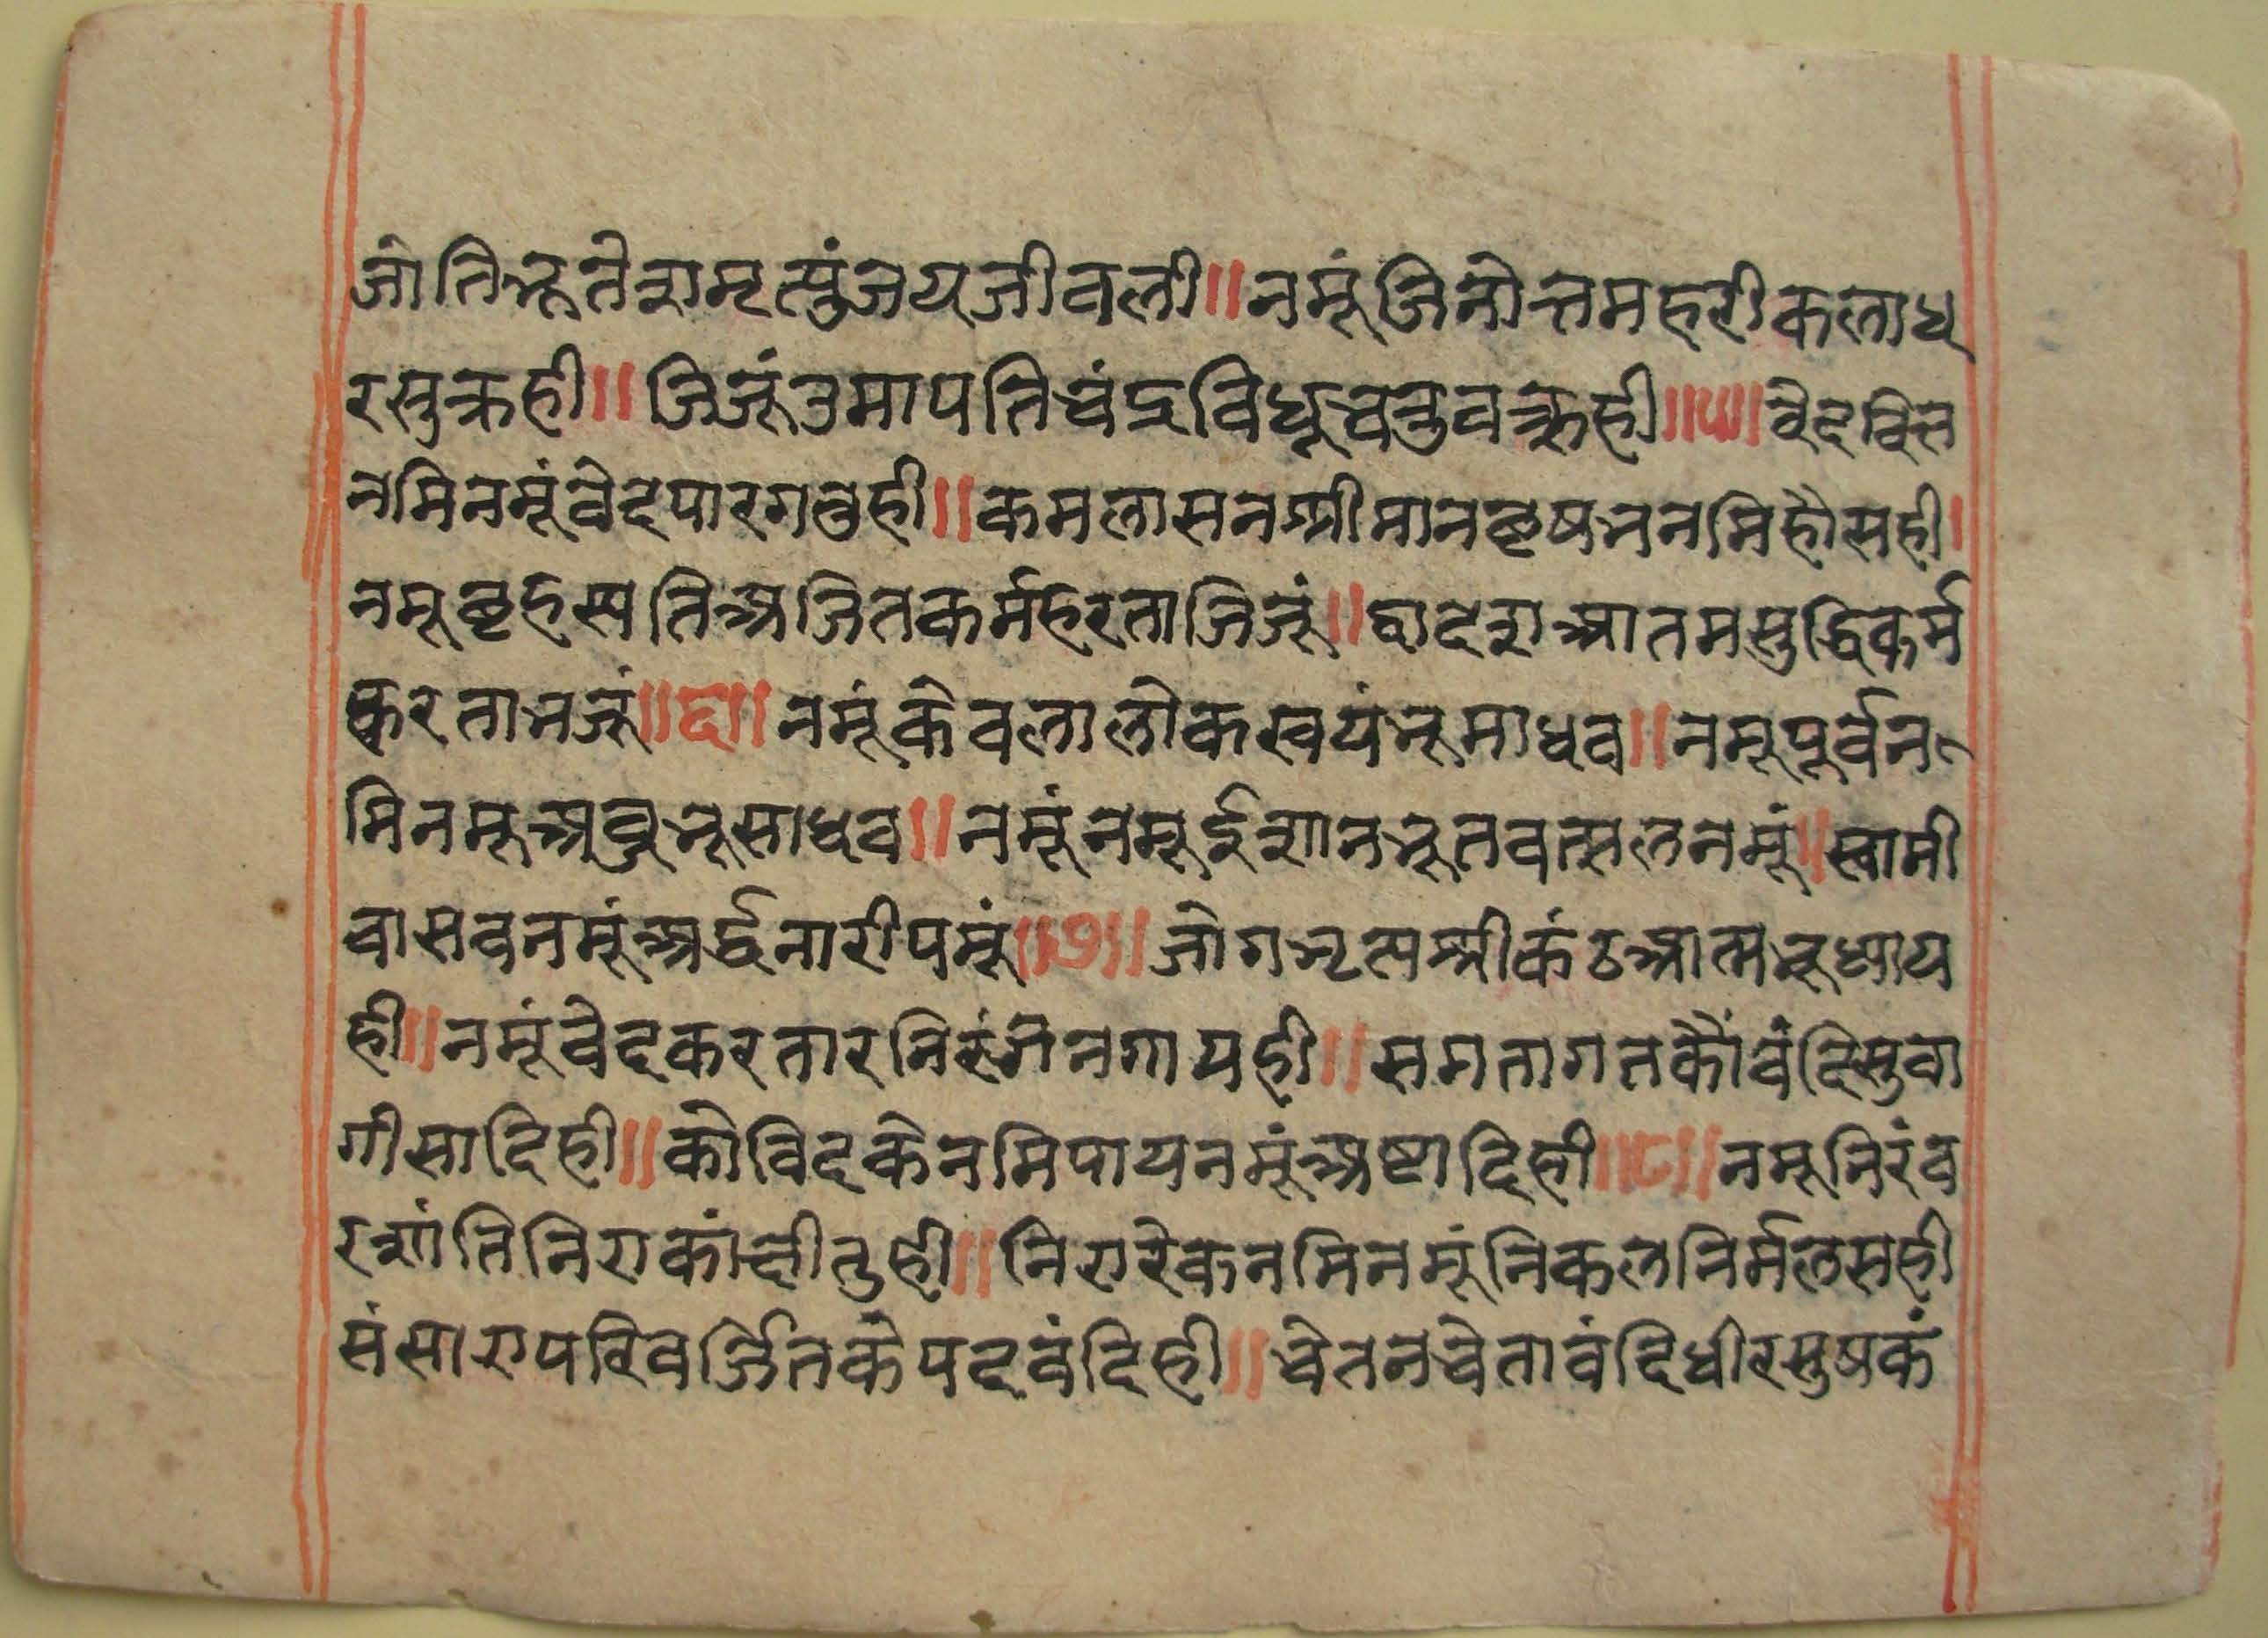 जोतिभूतेशमृत्युंजयजीवली॥नमूंजिनोत्तमहरीकलाध
रसुक्रही॥जिजूंउमापतिचंद्रविधूचतुवक्रही॥५॥वेदवित
नमिनमूंवेदपारगतुही॥कमलासनश्रीमानवृषभनमिहौसही।
नमूबृहस्पतिअजितकर्महरताजिजूं॥द्वादशआतमसुद्धिकर्म
करताभजूं॥६॥नमूंकेवलालोकस्वयंभूमाधव॥नमूपूर्वन
मिनमूअबुभूसाधव॥नमूंनमूईशानभूतवत्सलनमूं॥स्वामी
वासवनमूंअर्द्धनारीपमूं॥७॥जोगभृत्पश्रीकंठआत्मभूध्याय
ही॥नमूंवेदकरतारनिरंजनगायही॥सगतागतकौंवंदिसुवा
गीसादिही॥कोविदकेनमिपायनमूंअष्टादिही॥८॥नमूनिरंब
रशांतिनिराकांक्षीतुही॥निरारेकनमिनमूंनिकलनिर्मलसही
संसारापरिवर्जितकेपदवंदिही॥चेतनचेतावंदिधीरसुषकं